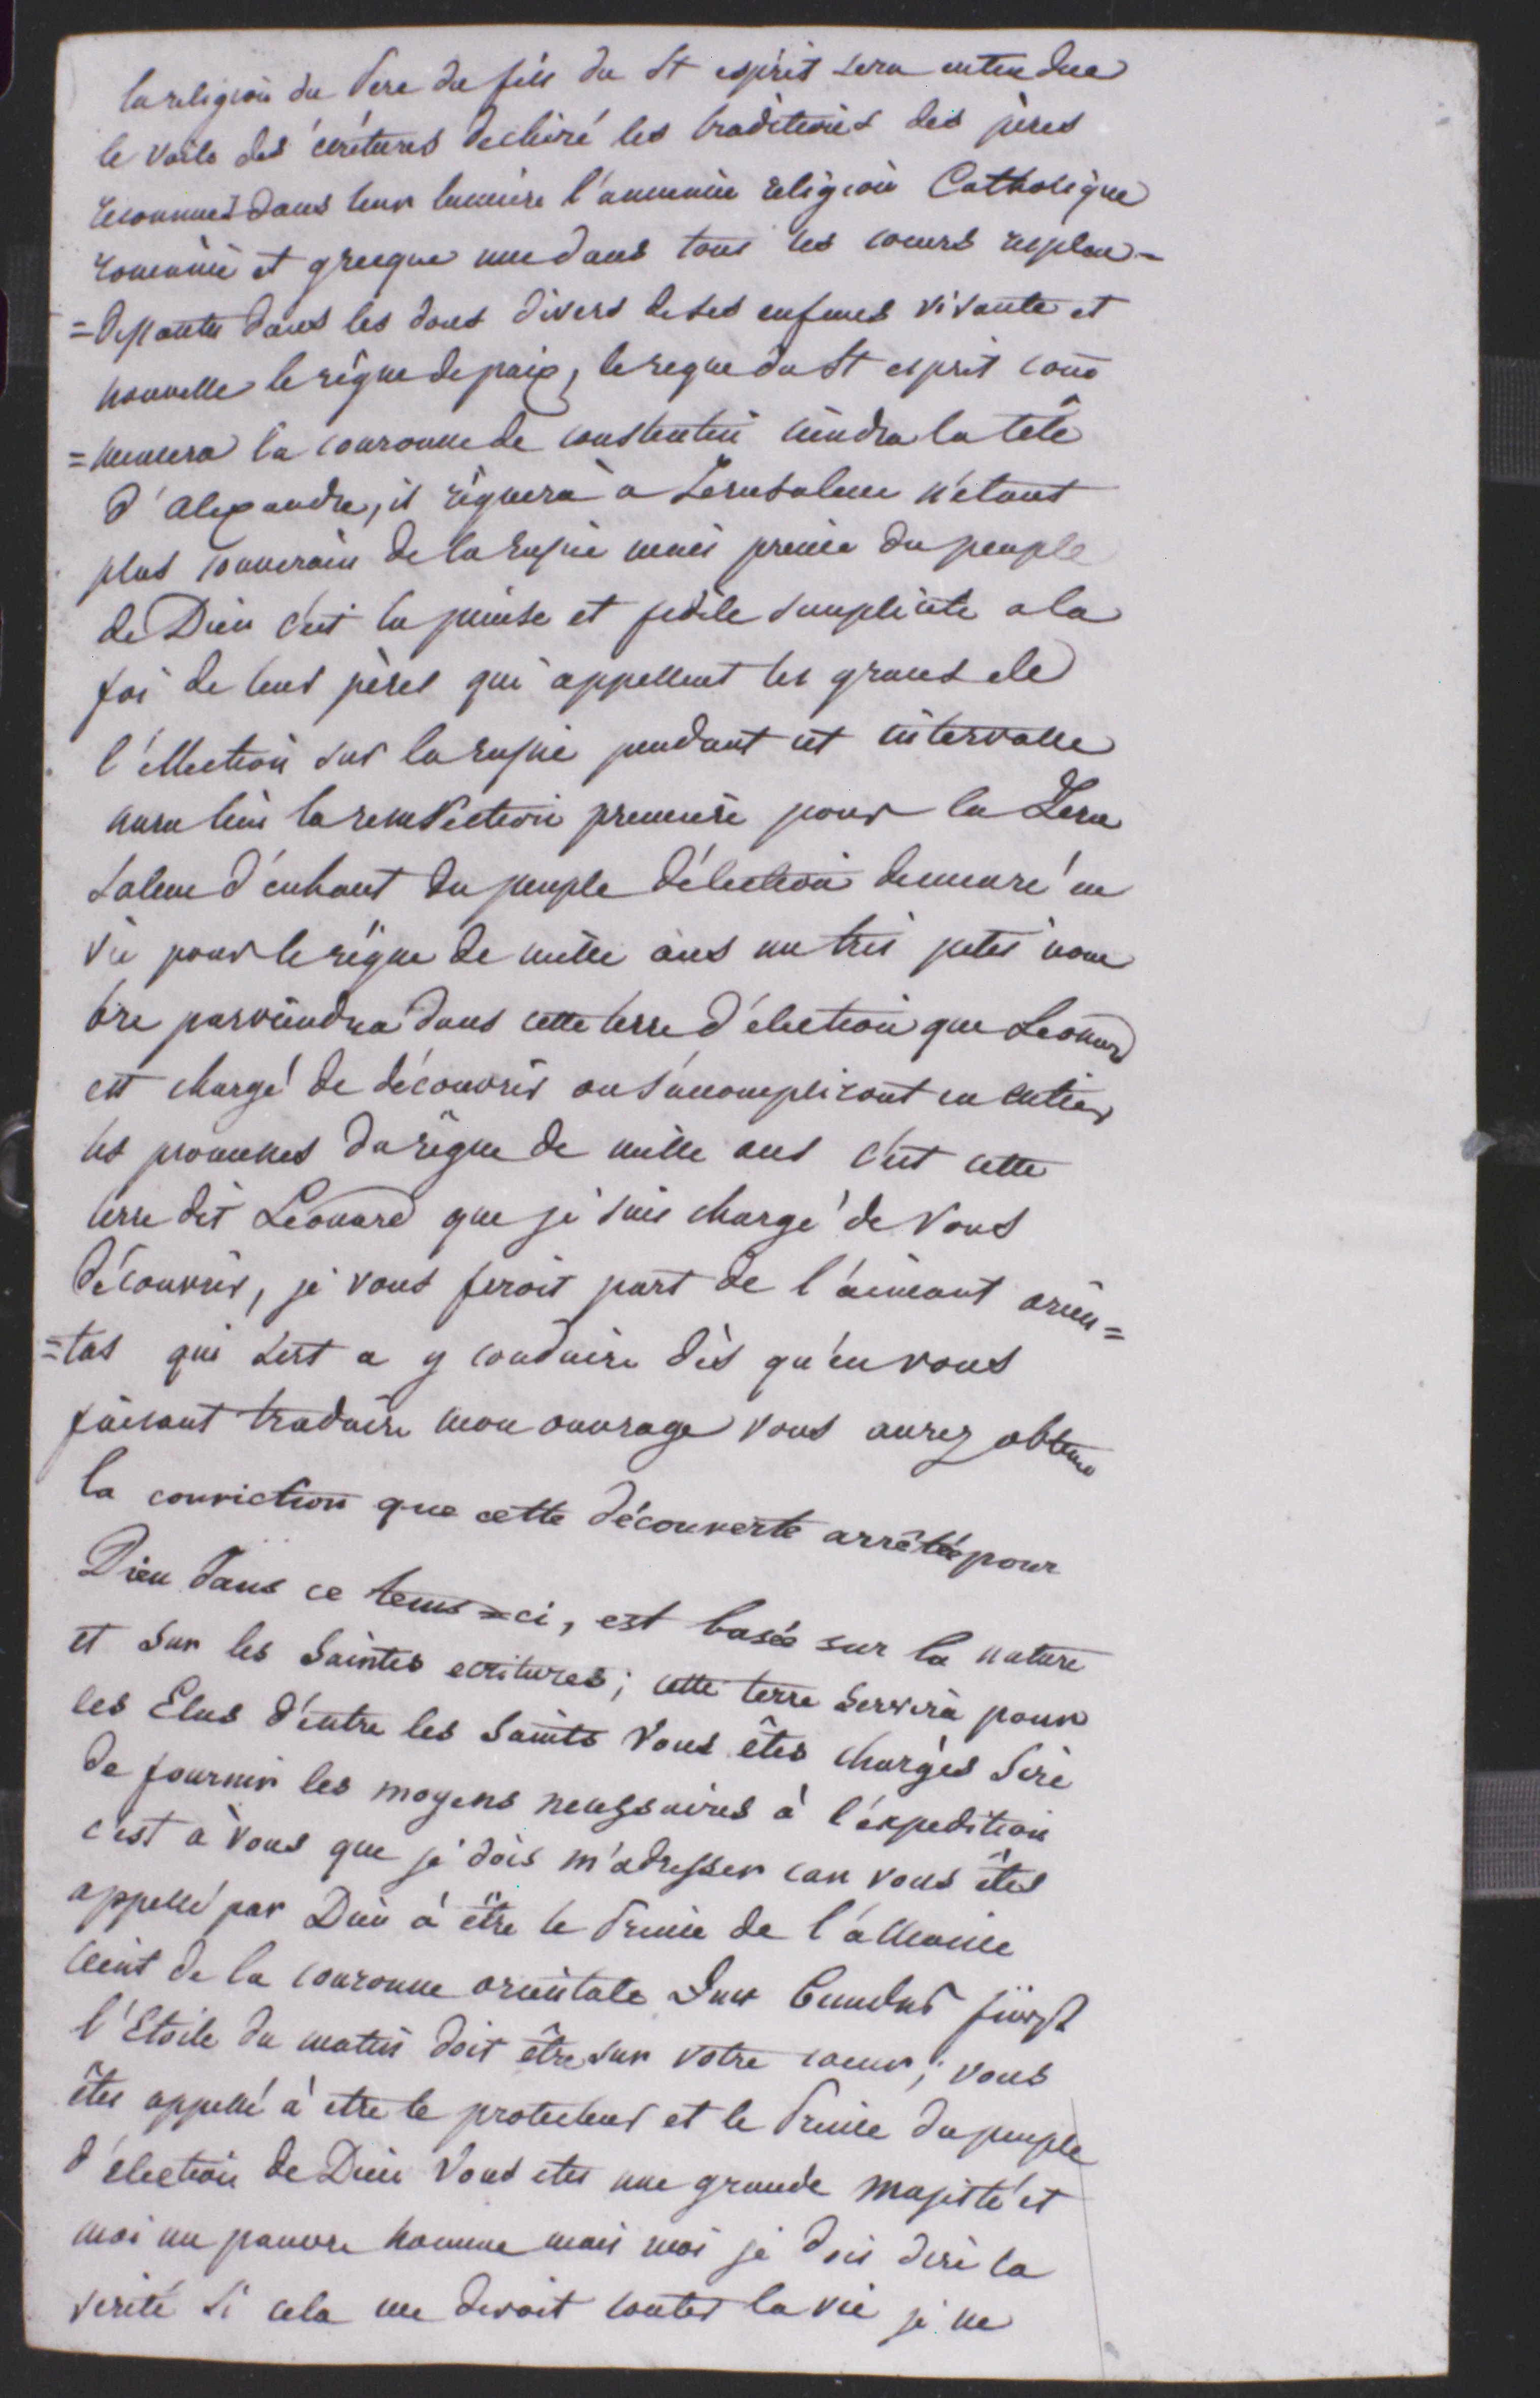 la religion du Pere du fils du St esprit sera entendue
le voile des écritures dechiré les traditions des pères
reconnues dans leur lumiere l'ancienne religion Catholique
romaine et grecque une dans tous les coeurs resplen-
=dissante dans les dons divers de ses enfans vivante et
nouvelle le règne de paix, le regne du St esprit com
=mencera la couronne de constantin ceindra la tête
d'alexandre, il règnera à Jerusalem n'etant
plus souverain de la russie mais prince du peuple
de Dieu c'est la pieuse et fidele simplicité a la
foi de leurs pères qui appellent les graces de
l'éllection sur la russie pendant cet intervalle
aura lieu la resurection premiere pour la Jeru
salem d'enhaut du peuple d'élection demeuré en
vie pour le règne de mille ans un très petit nom
bre parviendra dans cette terre d'élection que Leonard
est chargé de découvrir ou s'accompliront en entier
les promesses du règne de mille ans c'est cette
terre dit Léonard que je suis chargé de vous
découvrir, je vous ferois part de l'aimant orien=
=tal qui sert a y conduire dès qu'en vous
faisant traduire mon ouvrage vous aurez obtenu
la conviction que cette découverte arrêtée pour
Dieu dans ce tems=ci, est basée sur la nature
et sur les Saintes ecritures; cette terre servira pour
les Elus d'entre les Saints Vous êtes chargés Sire
de fournir les moyens necessaires à l'expedition
c'est à vous que je dois m'adresser car vous êtes
appellé par Dieu à être le Prince de l'alliance
ceint de la couronne orientale Der Bundes fürst
l'Etoile du matin doit être sur votre coeur; vous
êtes appellé à etre le protecteur et le Prince du peuple
d'élection de Dieu Vous etes une grande Majesté et
moi un pauvre homme mais moi je dois dire la
verité si cela me devoit couter la vie je ne